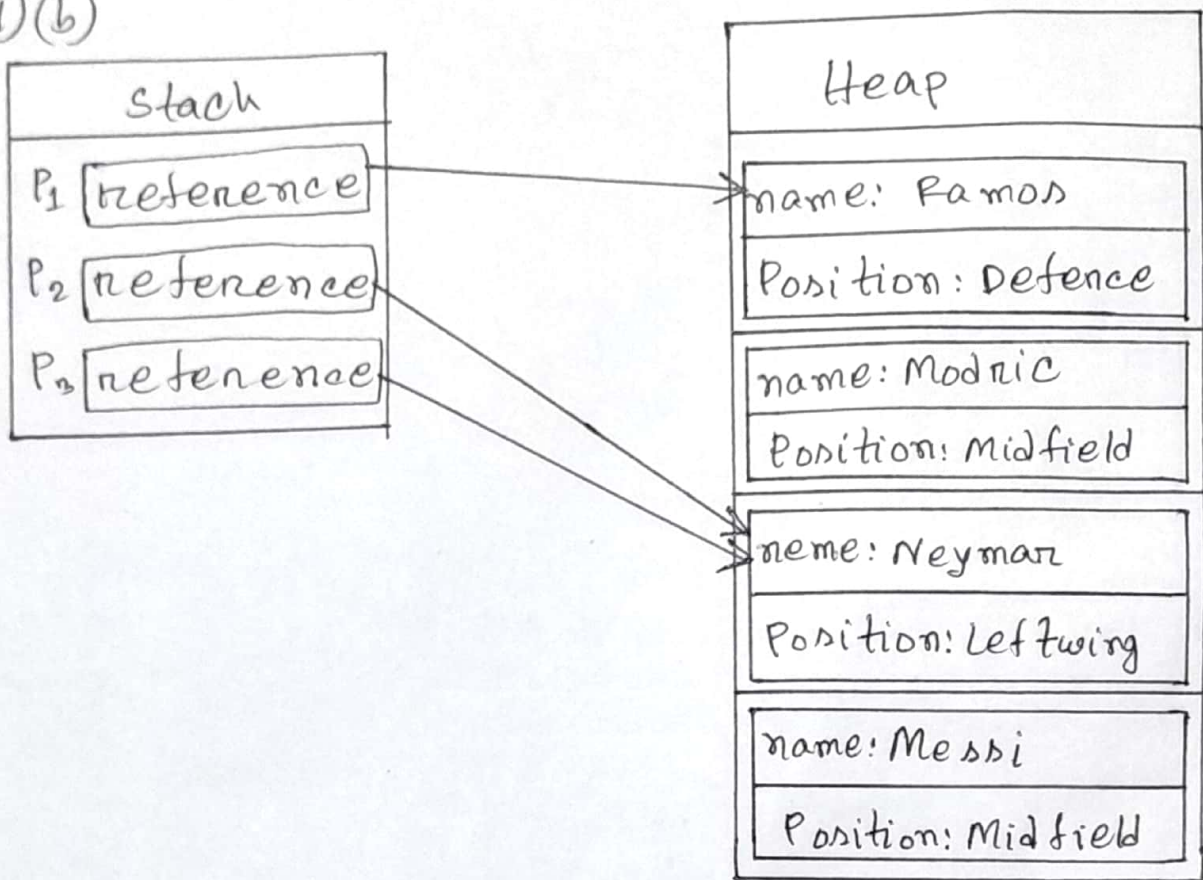 1)(b)
Stack
P1 reference
P2 reference
P3 reference
Heap
name: Ramos
Position: Defence
name: Modric
Position: Midfield
neme: Neymar
Position: Leftwing
name: Messi
Position: Midfield